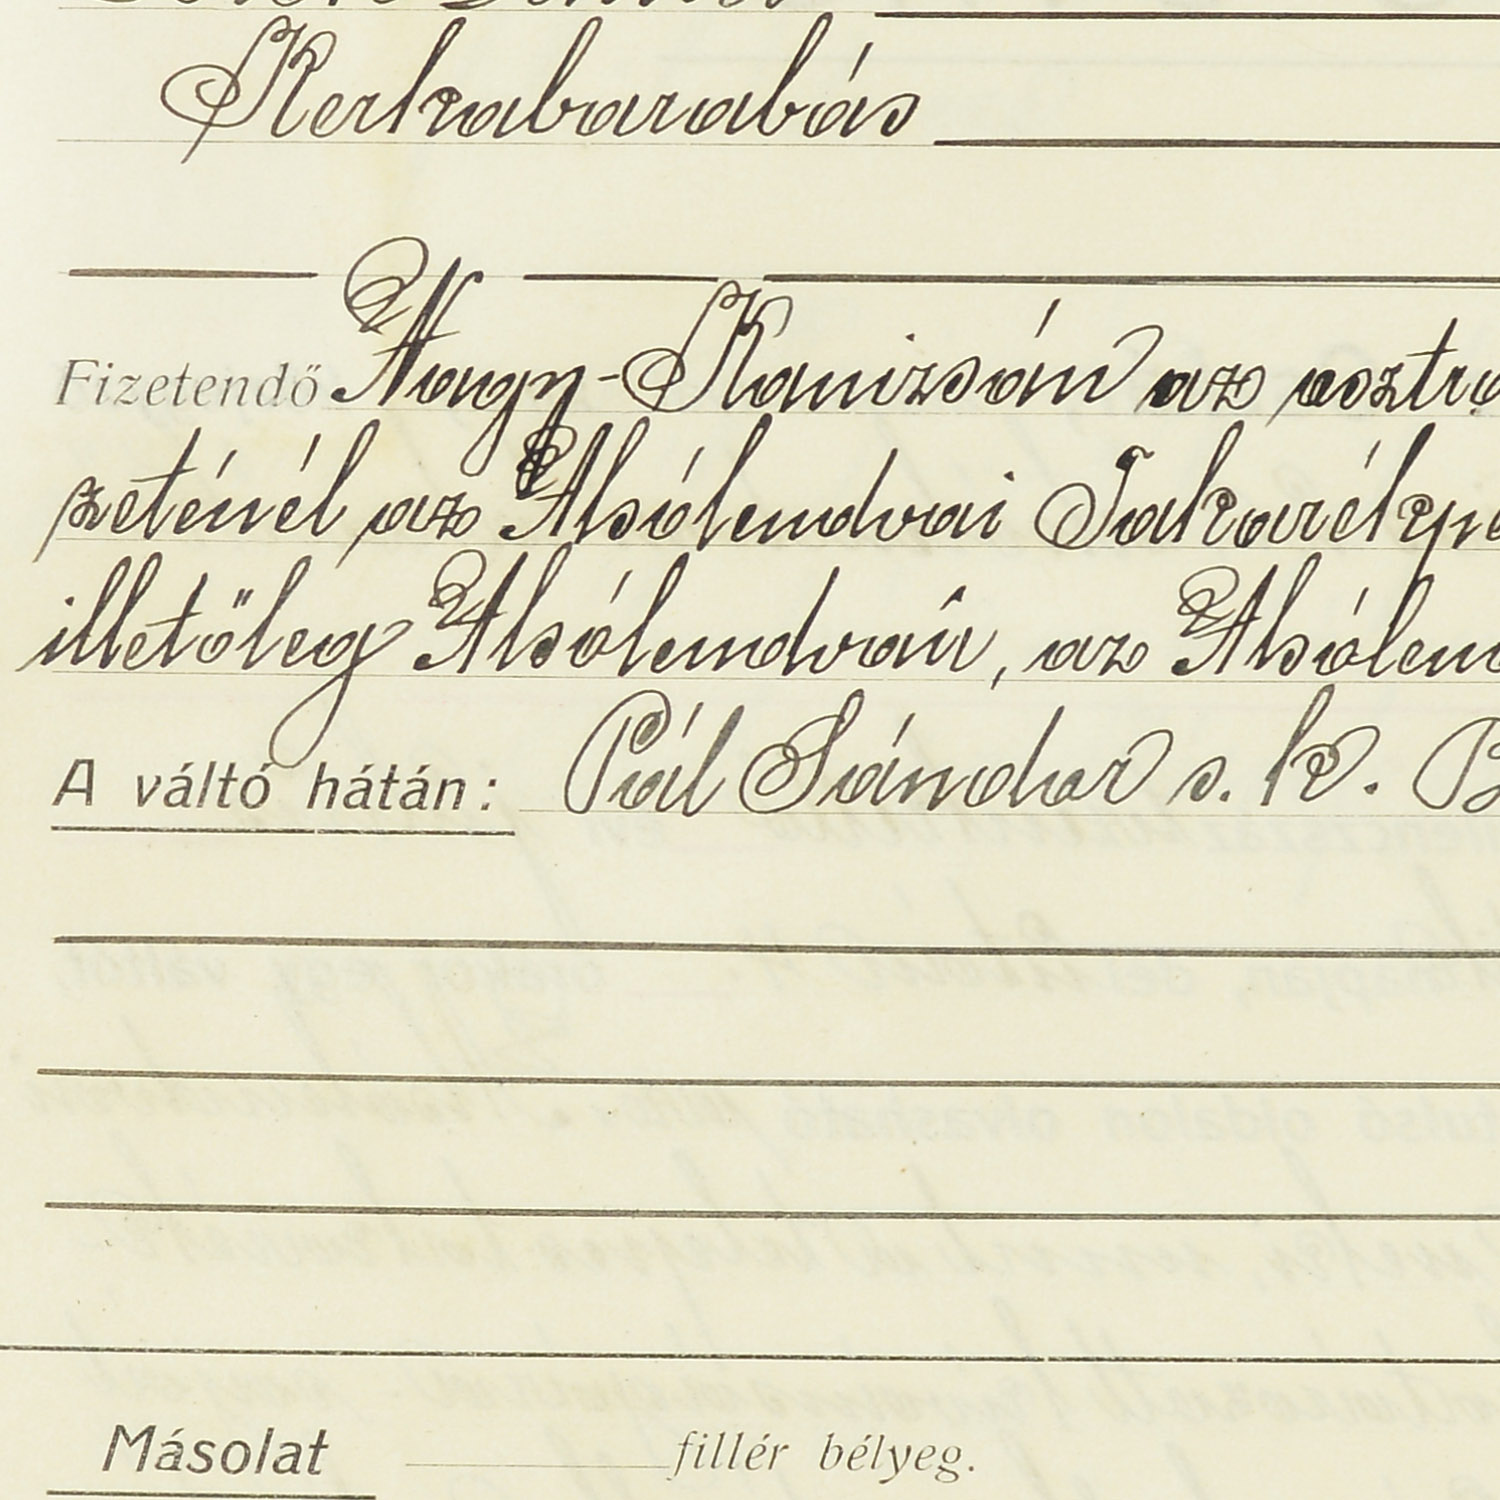 Kerkabarabás
Fizetendő Nagy-Kanizsán az osztr
zeténél az Alsólendvai Takarékpé
illetőleg Alsólendván, az Alsólend
A váltó hátán: Pál Sándor s. k. B
Másolat fillér bélyeg.